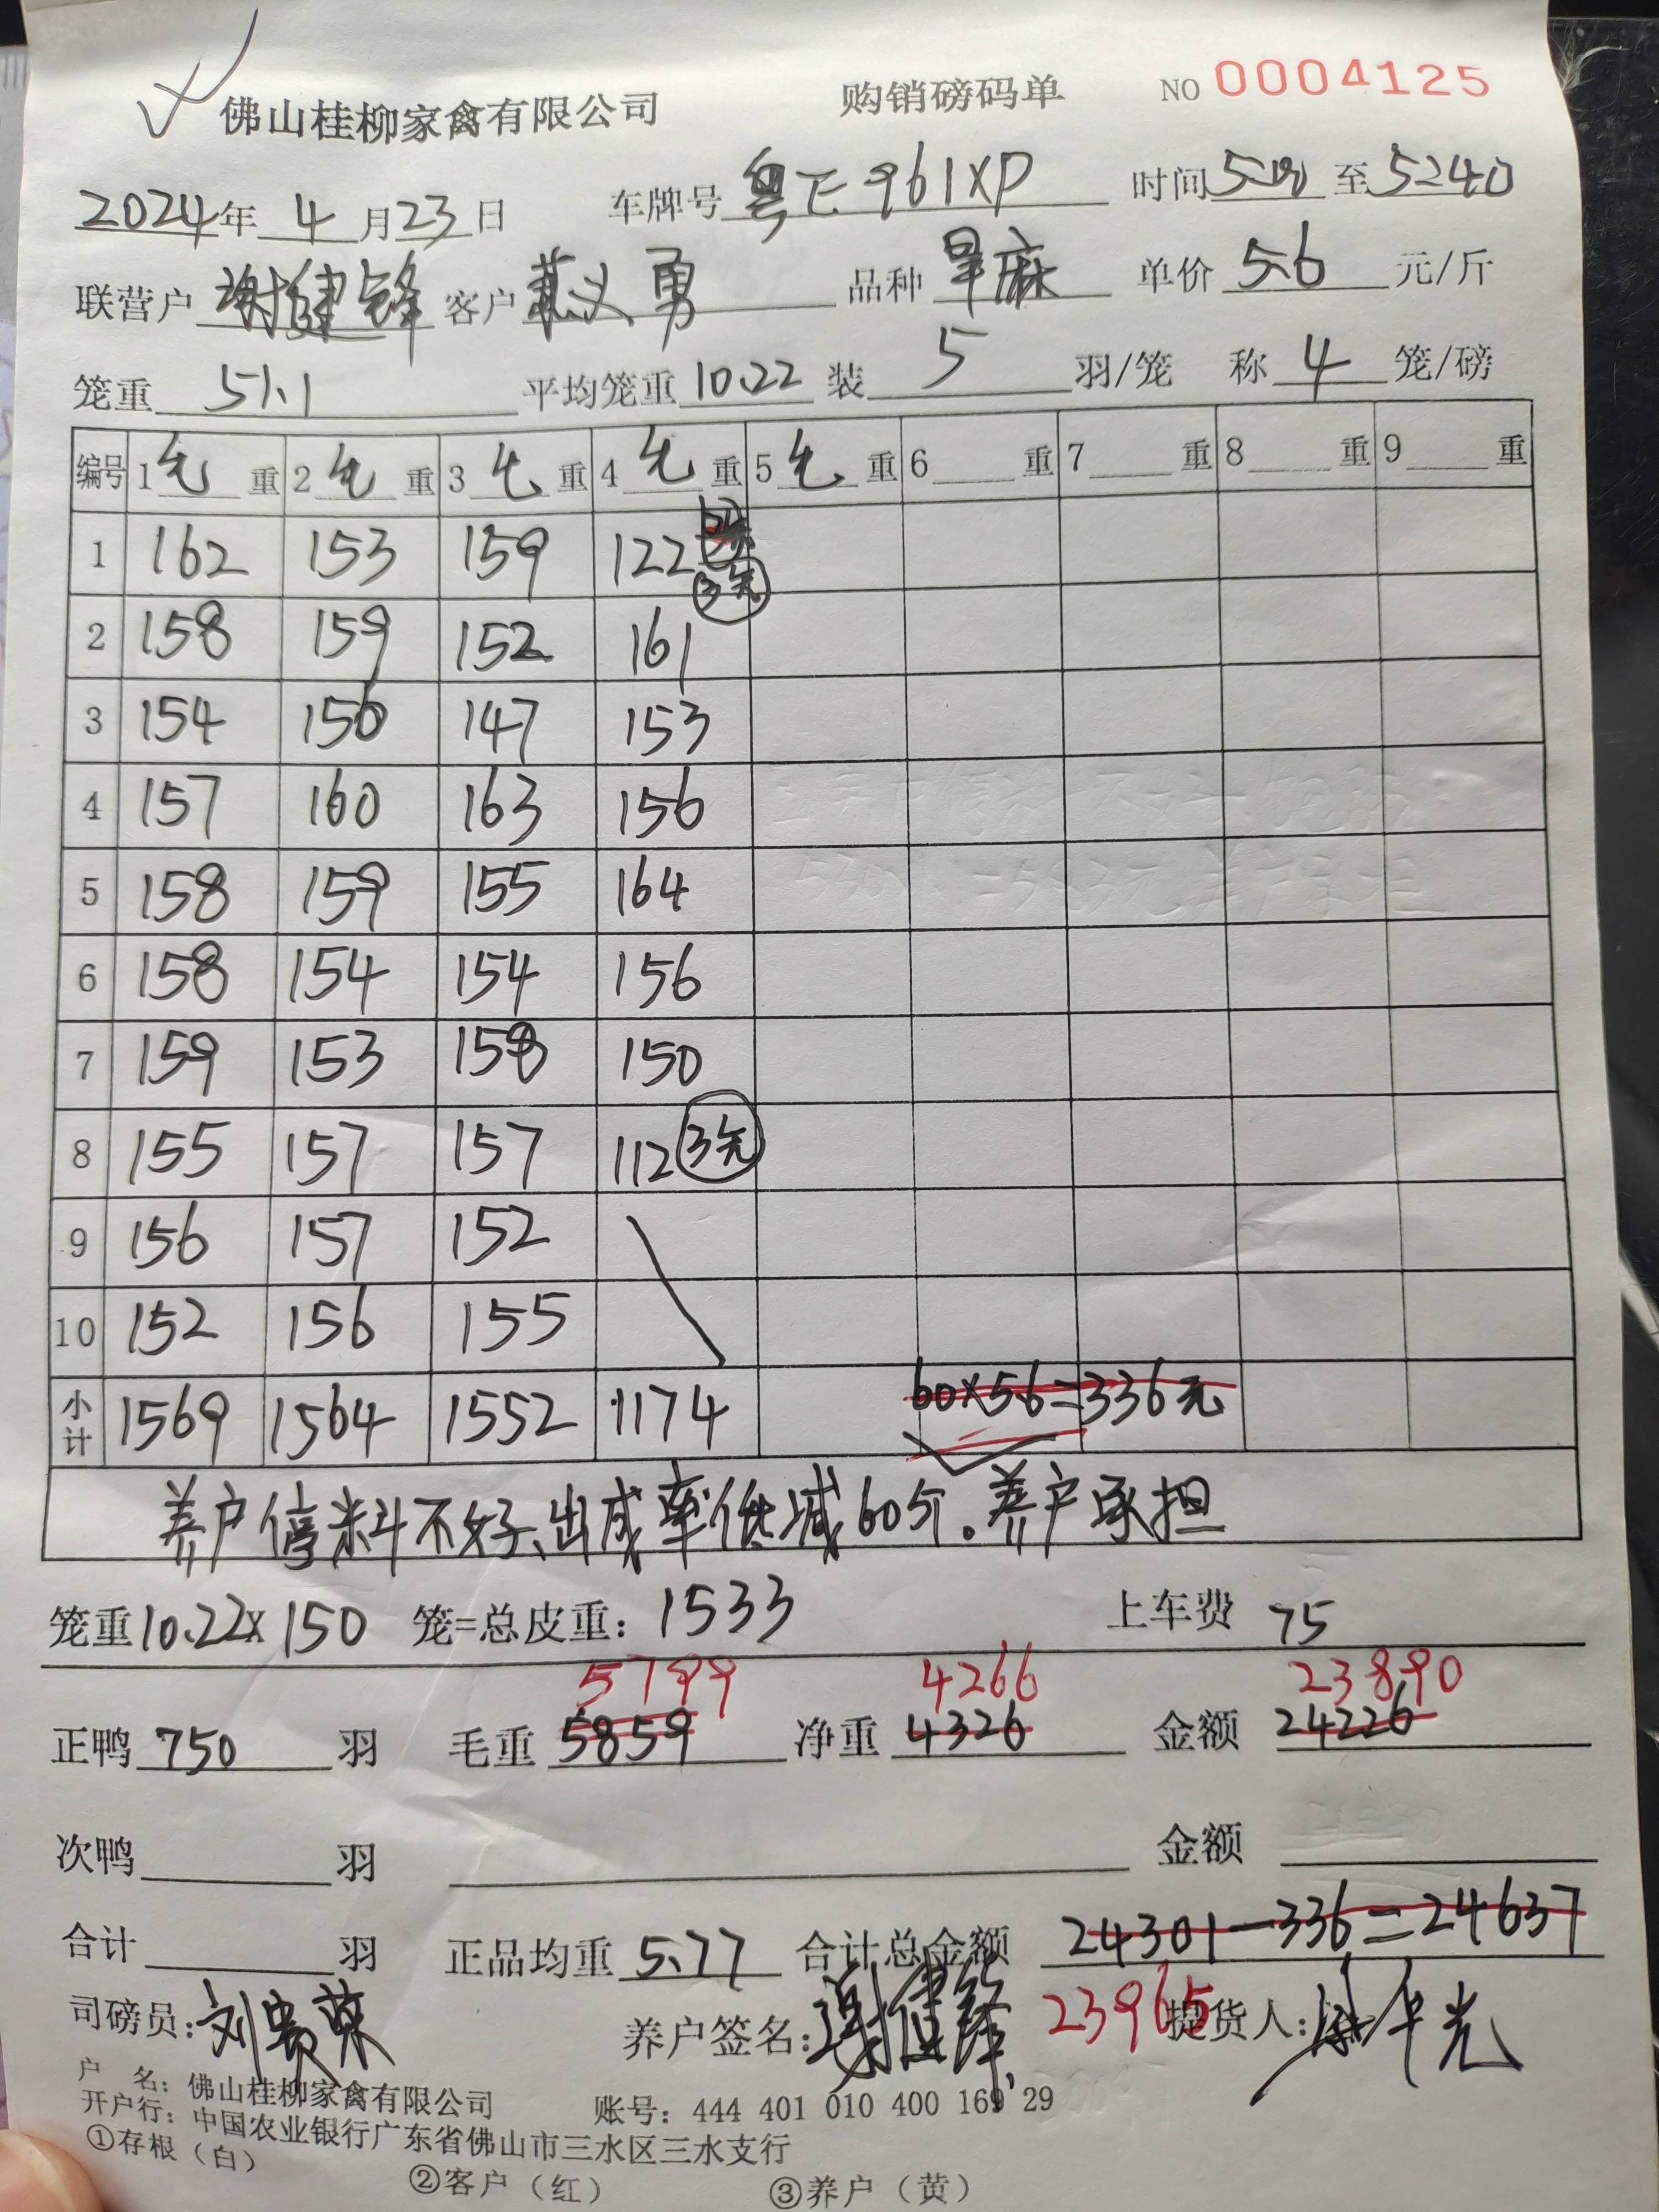 佛山桂柳家禽有限公司 购销磅码单 NO 0004125
2024年 4 月 23 日 车牌号 粤E961XP 时间 至 5240
联营户 谢健锋 客户 义勇 品种 旱麻 单价 5.6 元/斤
笼重 51.1 平均笼重 10.22 装 5 羽/笼 称 4 笼/磅
编号 1 重 2 重 3 重 4 重 5 重 6 重 7 重 8 重 9 重
1 162 153 159 122 3
2 158 159 152 161
3 154 156 147 153
4 157 160 163 156
5 158 159 155 164
6 158 154 154 156
7 159 153 158 150
8 155 157 157 112 3
9 156 157 152
10 152 156 155
小计 1569 1564 1552 1174 60×5.6=336元
养户停料不好、出成率低减60斤。养户承担
笼重10.22×150 笼=总皮重: 1533 上车费 75
5799 4266 23890
正鸭 750 羽 毛重 5859 净重 4326 金额 24226
次鸭 羽 金额
合计 羽 正品均重 5.77 合计总金额 24301-336=24637
司磅员: 刘 养户签名: 谢健锋 23965 提货人: 光
户 名: 佛山桂柳家禽有限公司 账号: 444 401 010 400 169 29
开户行: 中国农业银行广东省佛山市三水区三水支行
①存根（白） ②客户（红） ③养户（黄）